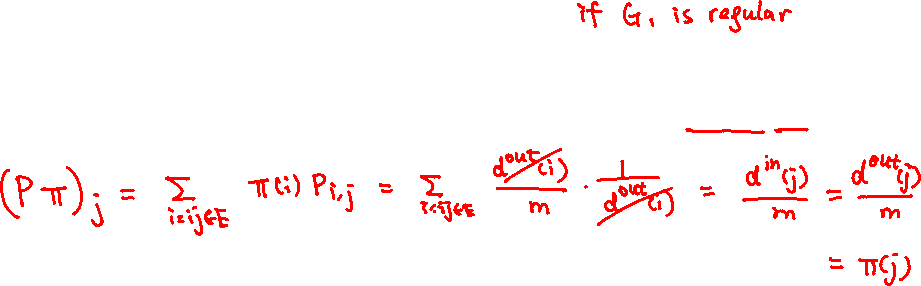 if G, is regular
(Pπ)_j = Σ_{i:ij∈E} π(i) P_{i,j} = Σ_{i:ij∈E} d^{out}(i)/m · 1/d^{out}(i) = d^{in}(j)/m = d^{out}(j)/m
= π(j)